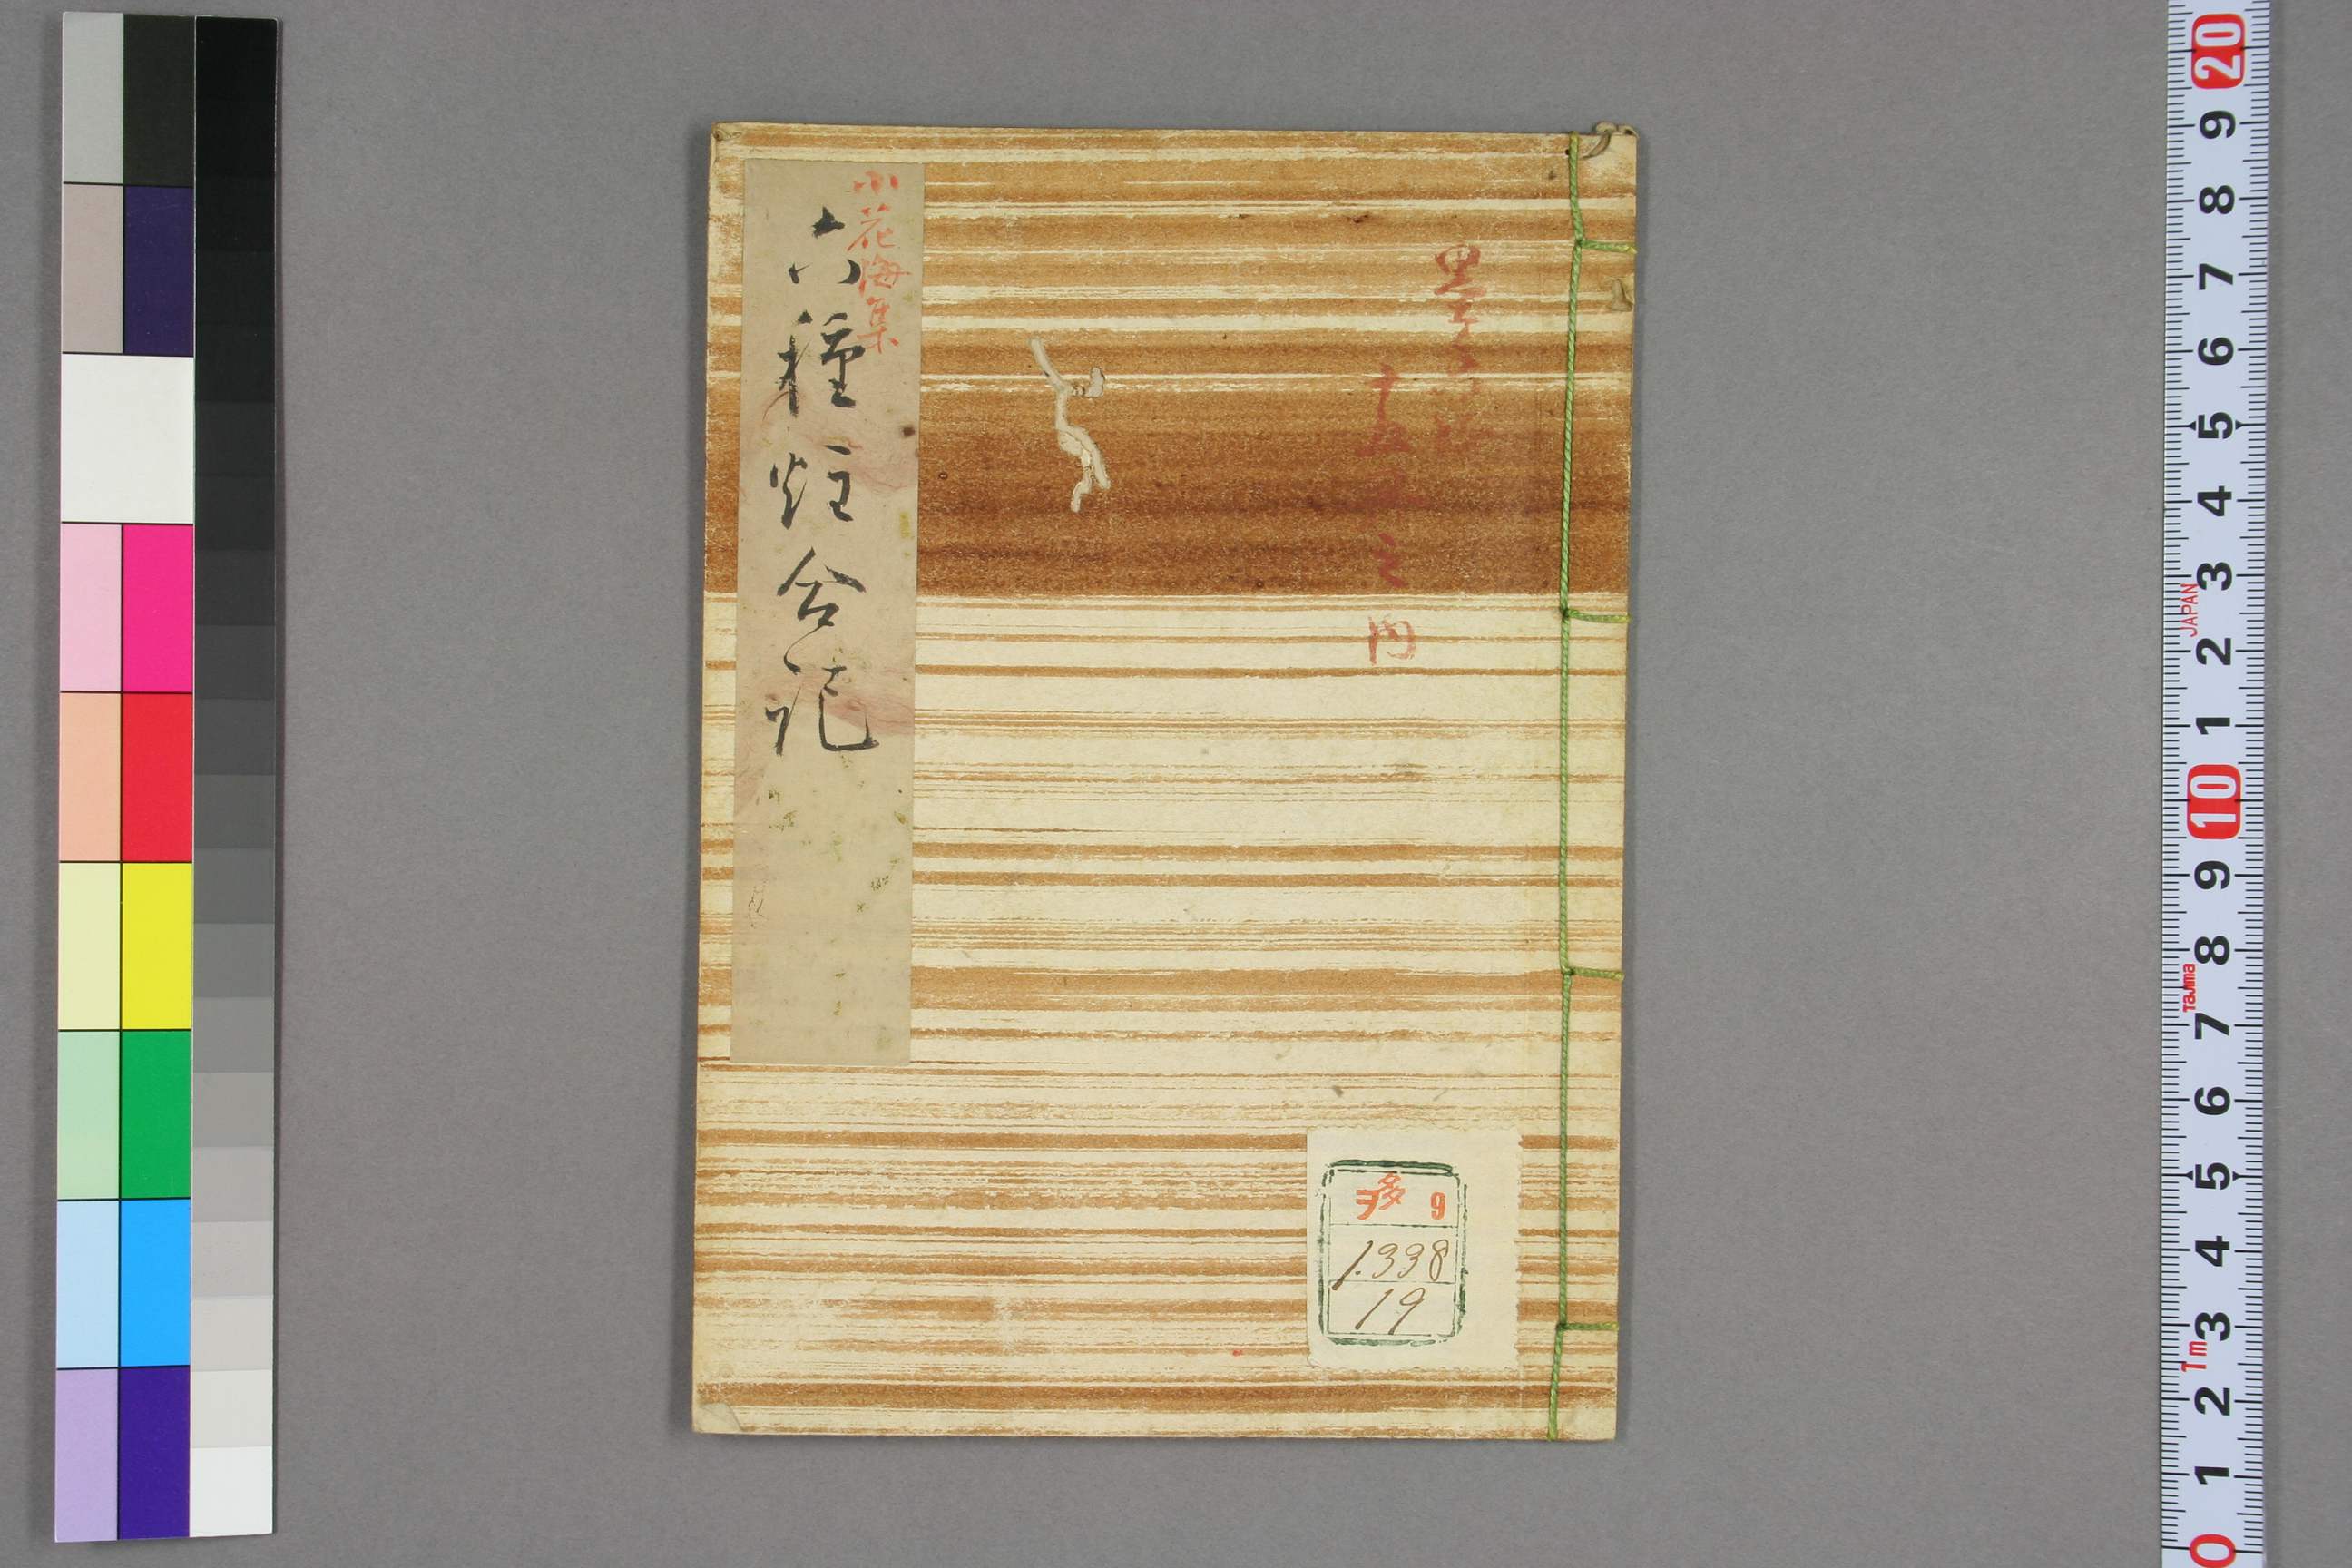 十五冊之内
小花海集
六種炷合記
ヲ多 9
1338
19
20
9
8
7
6
5
4
3
2
1
10
9
8
7
6
5
4
3
2
1
0
JAPAN
Tajima
1m